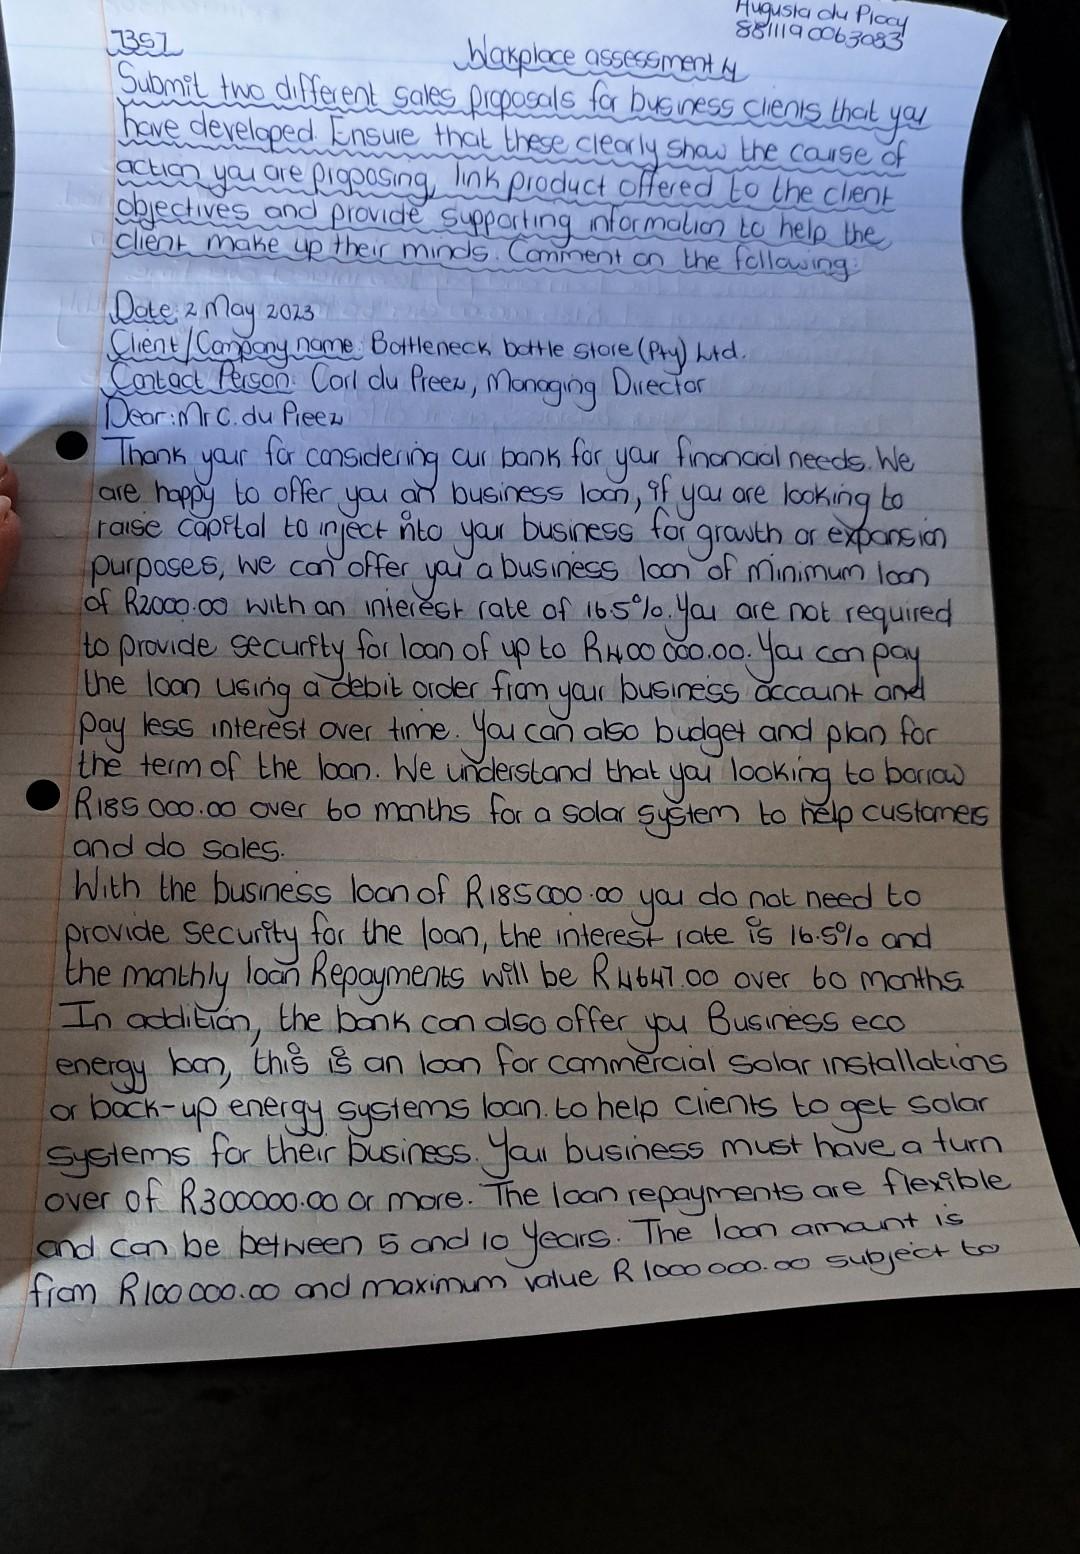 Augusta du Plooy
8811190063083
7357
Workplace assessment 4
Submit two different sales proposals for business clients that you
have developed. Ensure that these clearly show the course of
action you are proposing, link product offered to the client
objectives and provide supporting information to help the
client make up their minds. Comment on the following:
Date: 2 May 2023
Client/Company name: Bottleneck bottle store (Pty) Ltd.
Contact Person: Carl du Preez, Managing Director
Dear: Mr C. du Preez
Thank your for considering our bank for your financial needs. We
are happy to offer you an business loan, if you are looking to
raise capital to inject into your business for growth or expansion
purposes, we can offer you a business loan of minimum loan
of R2000.00 with an interest rate of 16.5%. You are not required
to provide security for loan of up to R400 000.00. You can pay
the loan using a debit order from your business account and
pay less interest over time. You can also budget and plan for
the term of the loan. We understand that you looking to borrow
R185 000.00 over 60 months for a solar system to help customers
and do sales.
With the business loan of R185000.00 you do not need to
provide security for the loan, the interest rate is 16.5% and
the monthly loan Repayments will be R4647.00 over 60 months.
In addition, the bank can also offer you Business eco
energy loan, this is an loan for commercial solar installations
or back-up energy systems loan. to help clients to get solar
systems for their business. Your business must have a turn
over of R300000.00 or more. The loan repayments are flexible
and can be between 5 and 10 years. The loan amount is
from R100 000.00 and maximum value R1000 000.00 subject to